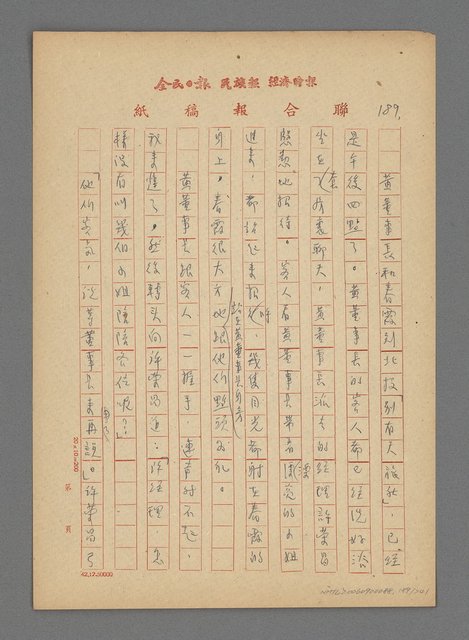 全民日報 民族報 經濟時報
聯合報稿紙
189.
黃董事長和春霞到北投「別有天旅社」，已經
是午後四點了。黃董事長的客人都已經洗好澡
坐在套房裏聊天，黃董事長派去的經理許榮昌
慇懃地招待。客人看黃董事長帶着漂亮的小姐
進來，都站起來招呼，幾隻目光都射在春霞的
身上。春霞很大方地跟他們點頭為禮。
站在黃董事長身旁
黃董事長跟客人一一握手，連聲對不起，
我來遲了。然後轉头向許榮昌道：「許經理，怎
樣沒有叫幾個小姐陪陪各位呢？」
「他們客氣，說等董事長來再說。」許榮昌弓
20×10=200
第 頁
42.12.50000